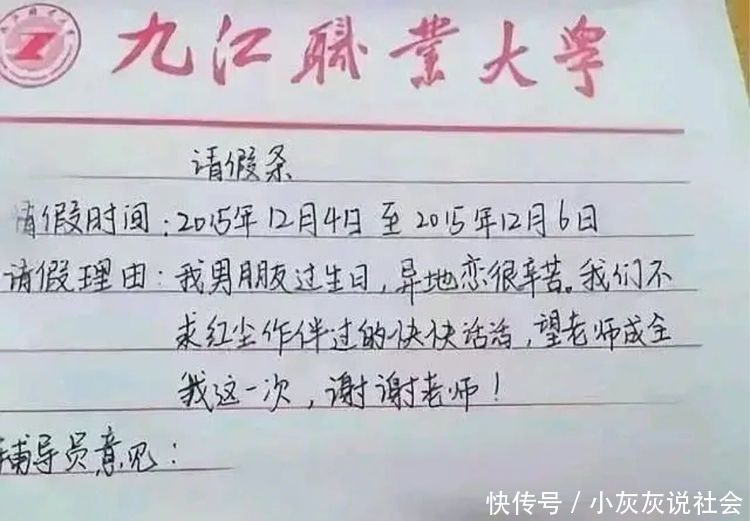 九江職業大学
请假条
请假时间：2015年12月4日至2015年12月6日
请假理由：我男朋友过生日，异地恋很辛苦。我们不
求红尘作伴过的快快活活，望老师成全
我这一次，谢谢老师！
辅导员意见：
快传号／小灰灰说社会